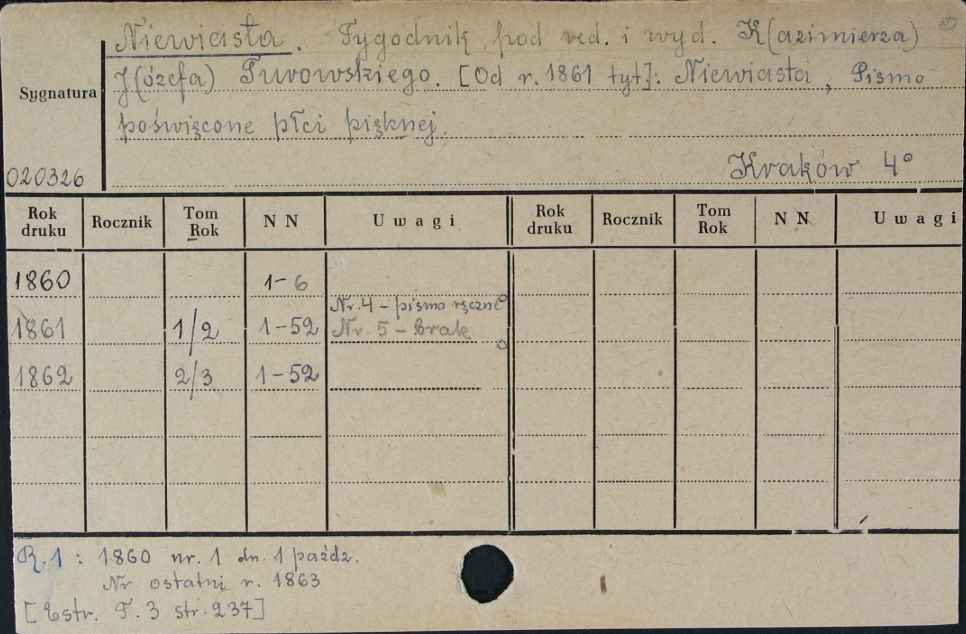 Niewiasta. Tygodnik pod red. i wyd. K(azimierza)
J(ózefa) Turowskiego. [Od r. 1861 tyt]: Niewiasta, Pismo
Sygnatura
poświęcone płci pięknej.
020326
Kraków 4°
Rok druku Rocznik Tom Rok N N Uwagi Rok druku Rocznik Tom Rok N N Uwagi
1860 1-6
Nr. 4 - pismo ręczne
1861 1/2 1-52 Nr. 5 - brak
1862 2/3 1-52
R.1 : 1860 nr. 1 dn. 1 paźdz.
Nr ostatni r. 1863
[Estr. T. 3 str. 237]